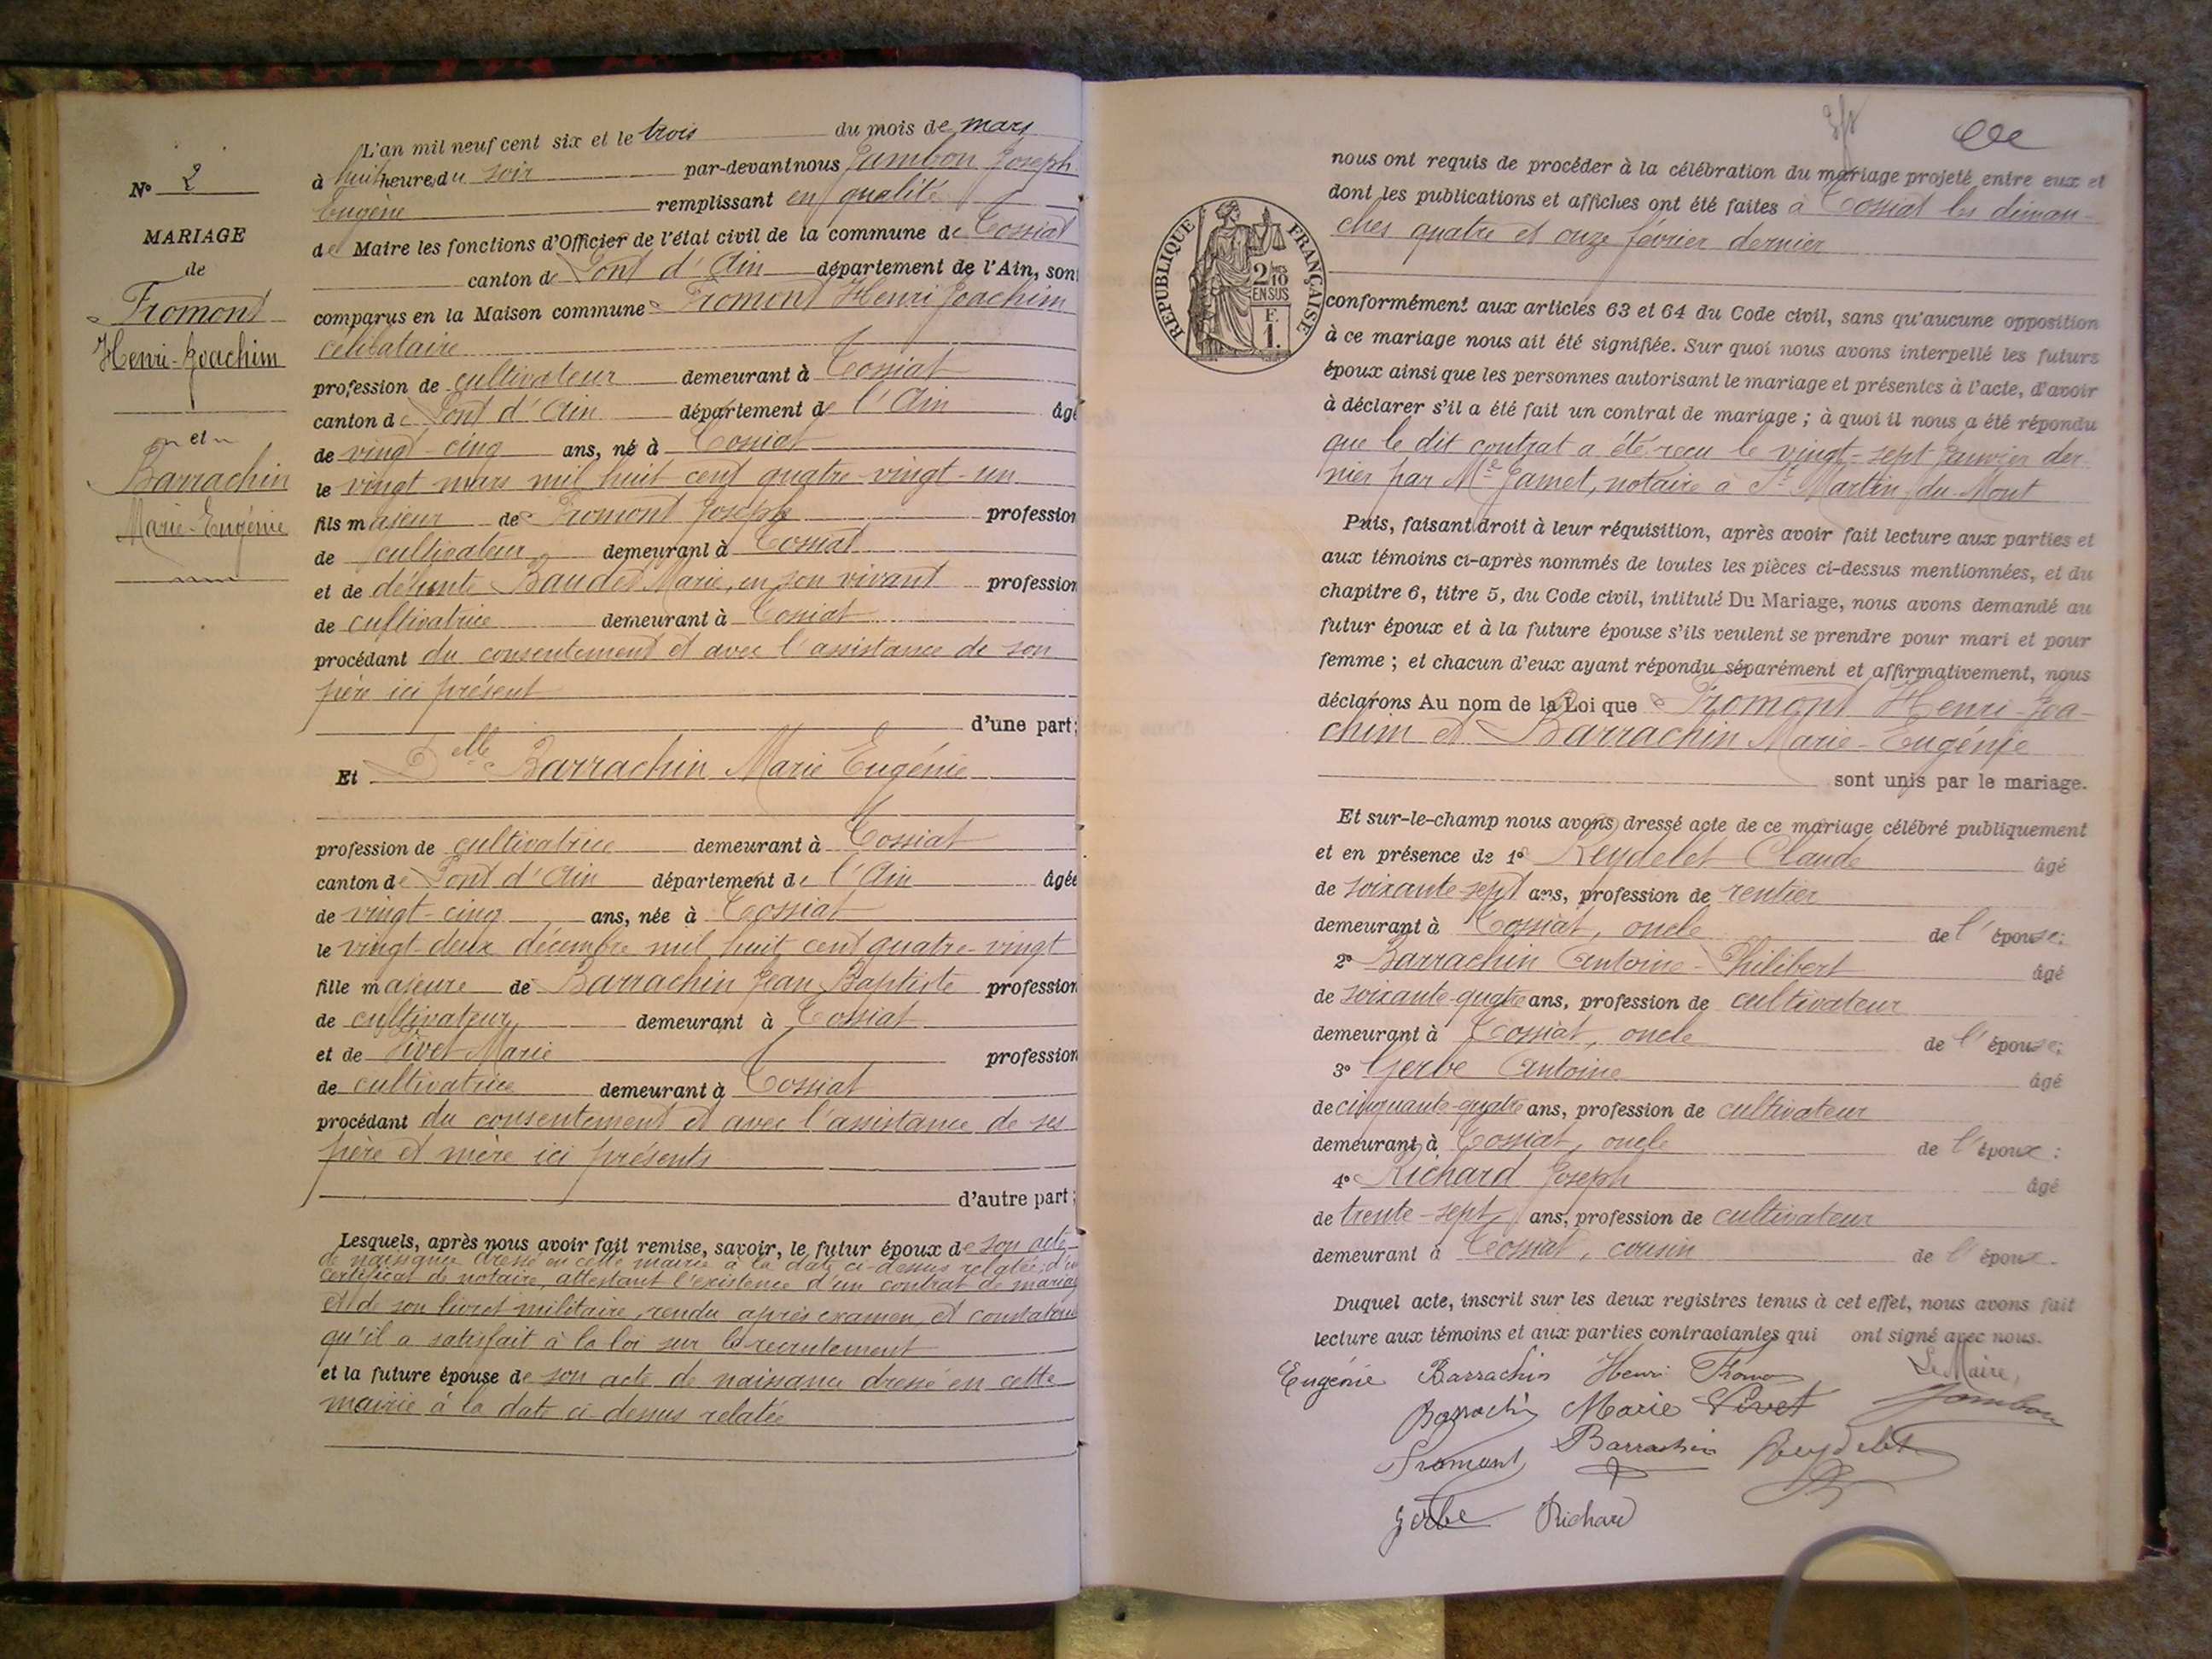 N° 2
MARIAGE
de
Fromont
Henri-Joachim
et
Barrachin
Marie-Eugénie
L'an mil neuf cent six et le trois du mois de mars
à huit heures du soir par-devant nous Jambon Joseph
Eugène remplissant en qualité
de Maire les fonctions d'Officier de l'état civil de la commune de Tossiat
canton de Pont d'Ain département de l'Ain, sont
comparus en la Maison commune Fromont Henri Joachim
célibataire
profession de cultivateur demeurant à Tossiat
canton de Pont d'Ain département de l'Ain âgé
de vingt-cinq ans, né à Tossiat
le vingt mars mil huit cent quatre-vingt-un
fils majeur de Fromont Joseph profession
de cultivateur demeurant à Tossiat
et de défunte Baudet Marie, en son vivant profession
de cultivatrice demeurant à Tossiat
procédant du consentement et avec l'assistance de son
père ici présent
d'une part;
Et Delle Barrachin Marie Eugénie
profession de cultivatrice demeurant à Tossiat
canton de Pont d'Ain département de l'Ain âgée
de vingt-cinq ans, née à Tossiat
le vingt-deux décembre mil huit cent quatre-vingt
fille majeure de Barrachin Jean Baptiste profession
de cultivateur demeurant à Tossiat
et de Vivet Marie profession
de cultivatrice demeurant à Tossiat
procédant du consentement et avec l'assistance de ses
père et mère ici présents
d'autre part;
Lesquels, après nous avoir fait remise, savoir, le futur époux de son acte
de naissance dressé en cette mairie à la date ci-dessus relatée; d'un
certificat de notaire, attestant l'existence d'un contrat de mariage
et de son livret militaire, rendu après examen et constatant
qu'il a satisfait à la loi sur le recrutement
et la future épouse de son acte de naissance dressé en cette
mairie à la date ci-dessus relatée
RÉPUBLIQUE FRANÇAISE
2/10
EN SUS
F.
1.
nous ont requis de procéder à la célébration du mariage projeté entre eux et
dont les publications et affiches ont été faites à Tossiat les diman-
ches quatre et onze février dernier
conformément aux articles 63 et 64 du Code civil, sans qu'aucune opposition
à ce mariage nous ait été signifiée. Sur quoi nous avons interpellé les futurs
époux ainsi que les personnes autorisant le mariage et présentes à l'acte, d'avoir
à déclarer s'il a été fait un contrat de mariage; à quoi il nous a été répondu
que le dit contrat a été reçu le vingt-sept janvier der-
nier par Me Jamet, notaire à St Martin du Mont
Puis, faisant droit à leur réquisition, après avoir fait lecture aux parties et
aux témoins ci-après nommés de toutes les pièces ci-dessus mentionnées, et du
chapitre 6, titre 5, du Code civil, intitulé Du Mariage, nous avons demandé au
futur époux et à la future épouse s'ils veulent se prendre pour mari et pour
femme; et chacun d'eux ayant répondu séparément et affirmativement, nous
déclarons Au nom de la Loi que Fromont Henri-Joa-
chim et Barrachin Marie-Eugénie
sont unis par le mariage.
Et sur-le-champ nous avons dressé acte de ce mariage célébré publiquement
et en présence de 1° Reydelet Claude âgé
de soixante-sept ans, profession de rentier
demeurant à Tossiat, oncle de l'épouse;
2° Barrachin Antoine-Philibert âgé
de soixante-quatre ans, profession de cultivateur
demeurant à Tossiat, oncle de l'épouse;
3° Gerbe Antoine âgé
de cinquante-quatre ans, profession de cultivateur
demeurant à Tossiat, oncle de l'époux;
4° Richard Joseph âgé
de trente-sept ans, profession de cultivateur
demeurant à Tossiat, cousin de l'époux.
Duquel acte, inscrit sur les deux registres tenus à cet effet, nous avons fait
lecture aux témoins et aux parties contractantes qui ont signé avec nous.
Eugénie Barrachin Henri Fromont Le Maire,
Barrachin Marie Vivet Jambon
Fromont Barrachin Reydelet
Gerbe Richard